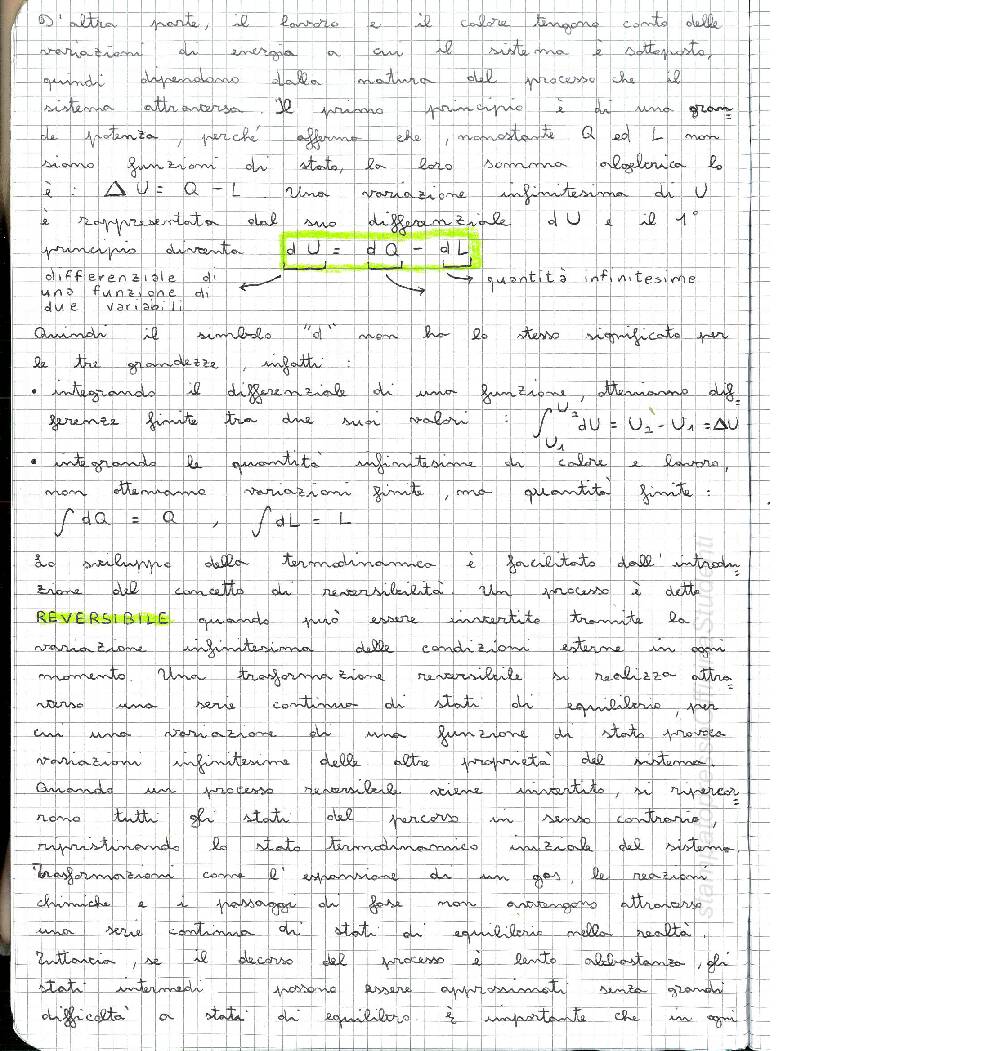 D'altra parte, il lavoro e il calore tengono conto delle
variazioni di energia a cui il sistema è sottoposto,
quindi dipendono dalla natura del processo che il
sistema attraversa. Il primo principio è di una gran=
de potenza, perché afferma che, nonostante Q ed L non
siano funzioni di stato, la loro somma algebrica lo
è: ΔU = Q - L. Una variazione infinitesima di U
è rappresentata dal suo differenziale dU e il 1°
principio diventa dU = dQ - dL
differenziale di
una funzione di
due variabili
quantità infinitesime
Quindi il simbolo "d" non ha lo stesso significato per
le tre grandezze, infatti:
• integrando il differenziale di una funzione, otteniamo dif=
ferenze finite tra due suoi valori: ∫_{U₁}^{U₂} dU = U₂ - U₁ = ΔU
• integrando le quantità infinitesime di calore e lavoro,
non otteniamo variazioni finite, ma quantità finite:
∫dQ = Q, ∫dL = L
Lo sviluppo della termodinamica è facilitato dall'introdu=
zione del concetto di reversibilità. Un processo è detto
REVERSIBILE quando può essere invertito tramite la
variazione infinitesima delle condizioni esterne in ogni
momento. Una trasformazione reversibile si realizza attra=
verso una serie continua di stati di equilibrio, per
cui una variazione di una funzione di stato provoca
variazioni infinitesime delle altre proprietà del sistema.
Quando un processo reversibile viene invertito, si ripercor=
rono tutti gli stati del percorso in senso contrario,
ripristinando lo stato termodinamico iniziale del sistema.
Trasformazioni come l'espansione di un gas, le reazioni
chimiche e i passaggi di fase non avvengono attraverso
una serie continua di stati di equilibrio nella realtà.
Tuttavia, se il decorso del processo è lento abbastanza, gli
stati intermedi possono essere approssimati senza grandi
difficoltà a stati di equilibrio. È importante che in ogni